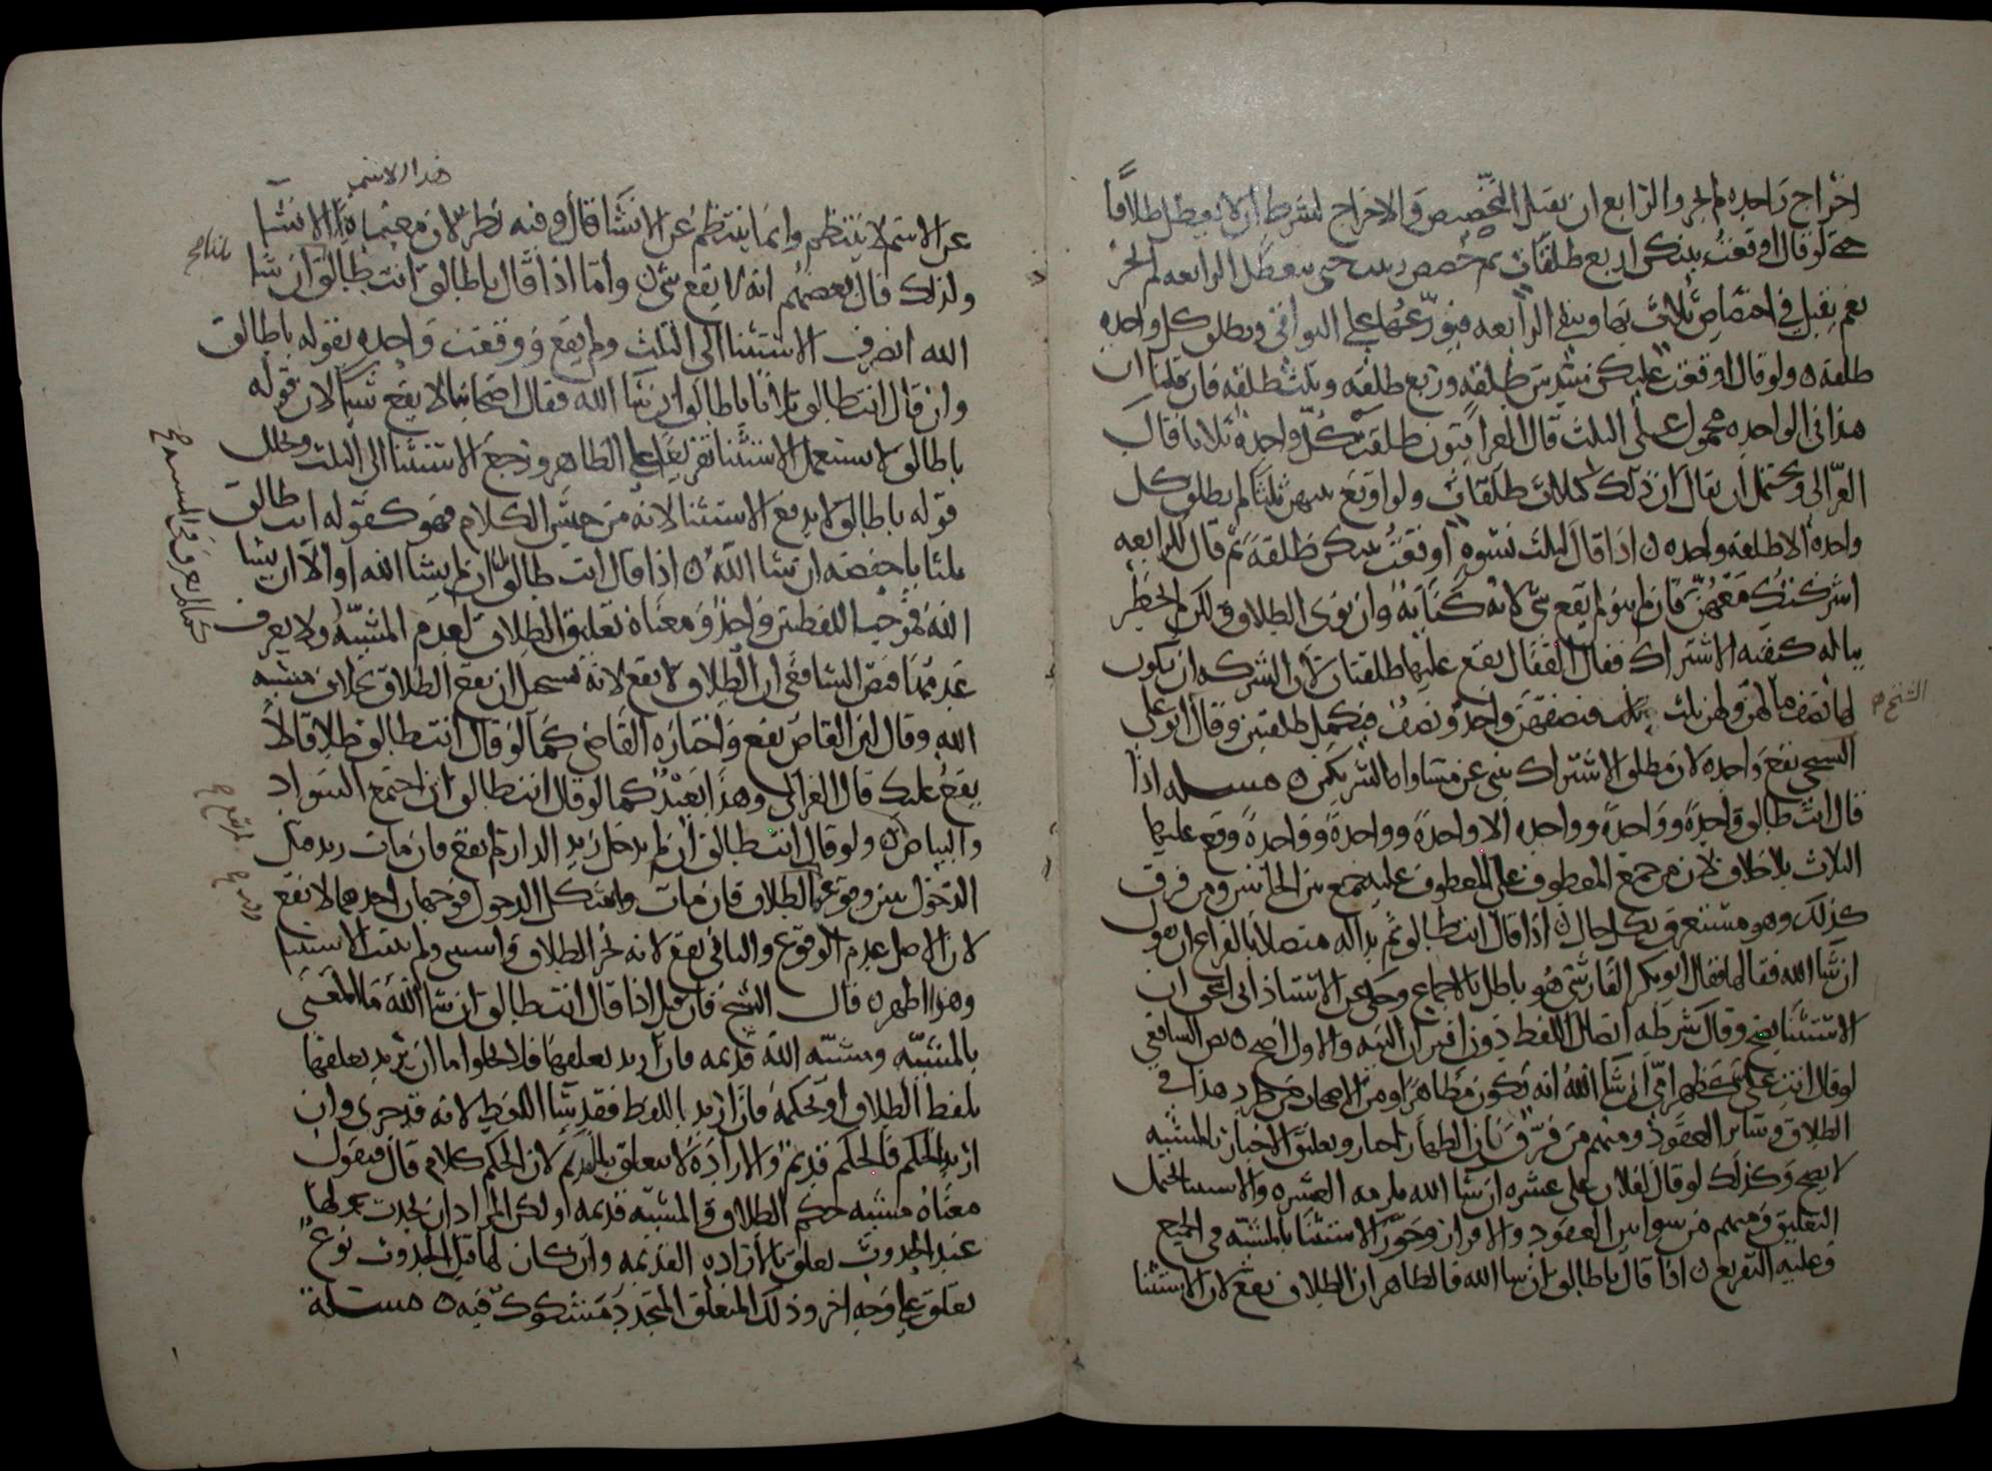 اخراج واحده لم يجز والرابع ان يقبل التخصيص والاخراج لشرط ان لا يعطل طلاقا
حتى لو قال اوقعت بينكن اربع طلقات ثم خصص حتى تعطل الرابعه لم يجز
نعم يقبل في اختصاص ثلاث بها وينفي الرابعه فيوزعها على البواقي ويطلق كل واحده
طلقه ولو قال اوقعت عليكن سدس طلقه وربع طلقه وثلث طلقه فان قلنا ان
هذا في الواحده محمول على الثلث قال العراقيون طلقت كل واحدة ثلاثا قال
الغزالي ويحتمل ان يقال ان ذلك كثلاث طلقات ولو اوقع بينهن ثلثا لم يطلق كل
واحدة الا طلقه واحده اذا قال لثلث نسوه اوقعت بينكن طلقة ثم قال للرابعه
اشركتك معهن فان لم ينو لم يقع شي لانه كنايه وان نوى الطلاق ولكن لم يخطر
بباله كيفيه الاشتراك فقال القفال يقع عليها طلقتان لان الشركه ان يكون
لها نصف ما لهن ولهن ثلث فنصفهن واحد ونصف فيكمل طلقتين وقال ابو علي
الشيخ
السنجي يقع واحده لان مطلق الاشتراك ينبي عن تساوي الشريكين مسله اذا
قال انت طالق واحدة وواحدة وواحده الا واحدة وواحدة وواحدة وقع عليها
الثلاث بلا خلاف لان من جمع المعطوف على المعطوف عليه جمع من الجانبين ومن فرق
كذلك وهو مستغرق بكل حال اذا قال انت طالق ثم بدا له متصلا بالفراغ ان يقول
ان شا الله فقالها فقال ابو بكر الفارسي هو باطل بالاجماع وحكى عن الاستاذ ابي اسحق ان
الاستثنا يصح وقال شرطه اتصال اللفظ دون اقتران النيه والاول اصح نص الشافعي
لو قال انت علي كظهر امي ان شا الله انه يكون مظاهرا ومن الاصحاب من طرد هذا في
الطلاق وساير العقود ومنهم من فرق بان الظهار اخبار وتعليق الاخبار بالمشيه
لا يصح وكذلك لو قال لفلان علي عشره ان شا الله يلزمه العشره
التعليق ومنهم من سوا بين العقود والاقرار وجوز الاستثنا بالمشيه في الجميع
وعليه التفريع اذا قال يا طالق ان شا الله فالظاهر ان الطلاق يقع لان الاستثنا
هذا الاسم
عن الاسم لا ينتظم وانما ينتظم عن الانشا قال وفيه نظر لان معنى هذا الانشا
ولذلك قال بعضهم انه لا يقع شي واما اذا قال يا طالق انت طالق ان شا
الله انصرف الاستثنا الى الثلث ولم يقع ووقعت واحده بقوله يا طالق
وان قال انت طالق ثلاثا يا طالق ان شا الله فقال اصحابنا لا يقع شيا لان قوله
يا طالق لا يستعمل الاستثنا تفريعا على الظاهر ورجع الاستثنا الى الثلث وتخلل
قوله يا طالق لا يدفع الاستثنا لانه من حيث الكلام فهو كقوله انت طالق
ثلثا يا حفصه ان شا الله اذا قال انت طالق ان لم يشا الله او الا ان يشا
الله فموجب اللفظين واحد ومعناه تعليق الطلاق لعدم المشيه ولا يعرف
عدمها فنص الشافعي ان الطلاق لا يقع لانه يستحيل ان يقع الطلاق بخلاف مشيه
الله وقال ابن القاص يقع واختاره القاضي كما لو قال انت طالق طلاقا لا
يقع عليك قال الغزالي وهذا بعيد كما لو قال انت طالق ان اجتمع السواد
والبياض ولو قال انت طالق ان لم يدخل زيد الدار لم يقع فان مات زيد قبل
الدخول تبين وقوع الطلاق فان مات واشكل الدخول فوجهان احدهما لا يقع
لان الاصل عدم الوقوع والثاني يقع لانه نجز الطلاق واستثنى ولم يثبت الاستثنا
وهذا اظهر قال الشيخ فان قيل اذا قال انت طالق ان شا الله فما المعنى
بالمشيه ومشيه الله قديمه فان اريد تعلقها فلا يخلوا اما ان يريد تعلقها
بلفظ الطلاق او بحكمه فان اريد باللفظ فقد شا اللفظ لانه قد جرى وان
اريد الحكم فالحكم قديم والارادة لا تتعلق بالقديم لان الحكم كلام قال فيقول
معناه مشيه حكم الطلاق والمشيه قديمه ولكن المراد ان يحدث تعلقها
عند الحدوث تعلق بالاراده القديمه وان كان لها قبل الحدوث نوع
تعلق على وجه اخر وذلك المتعلق المتجدد مشكوك فيه مسئلة